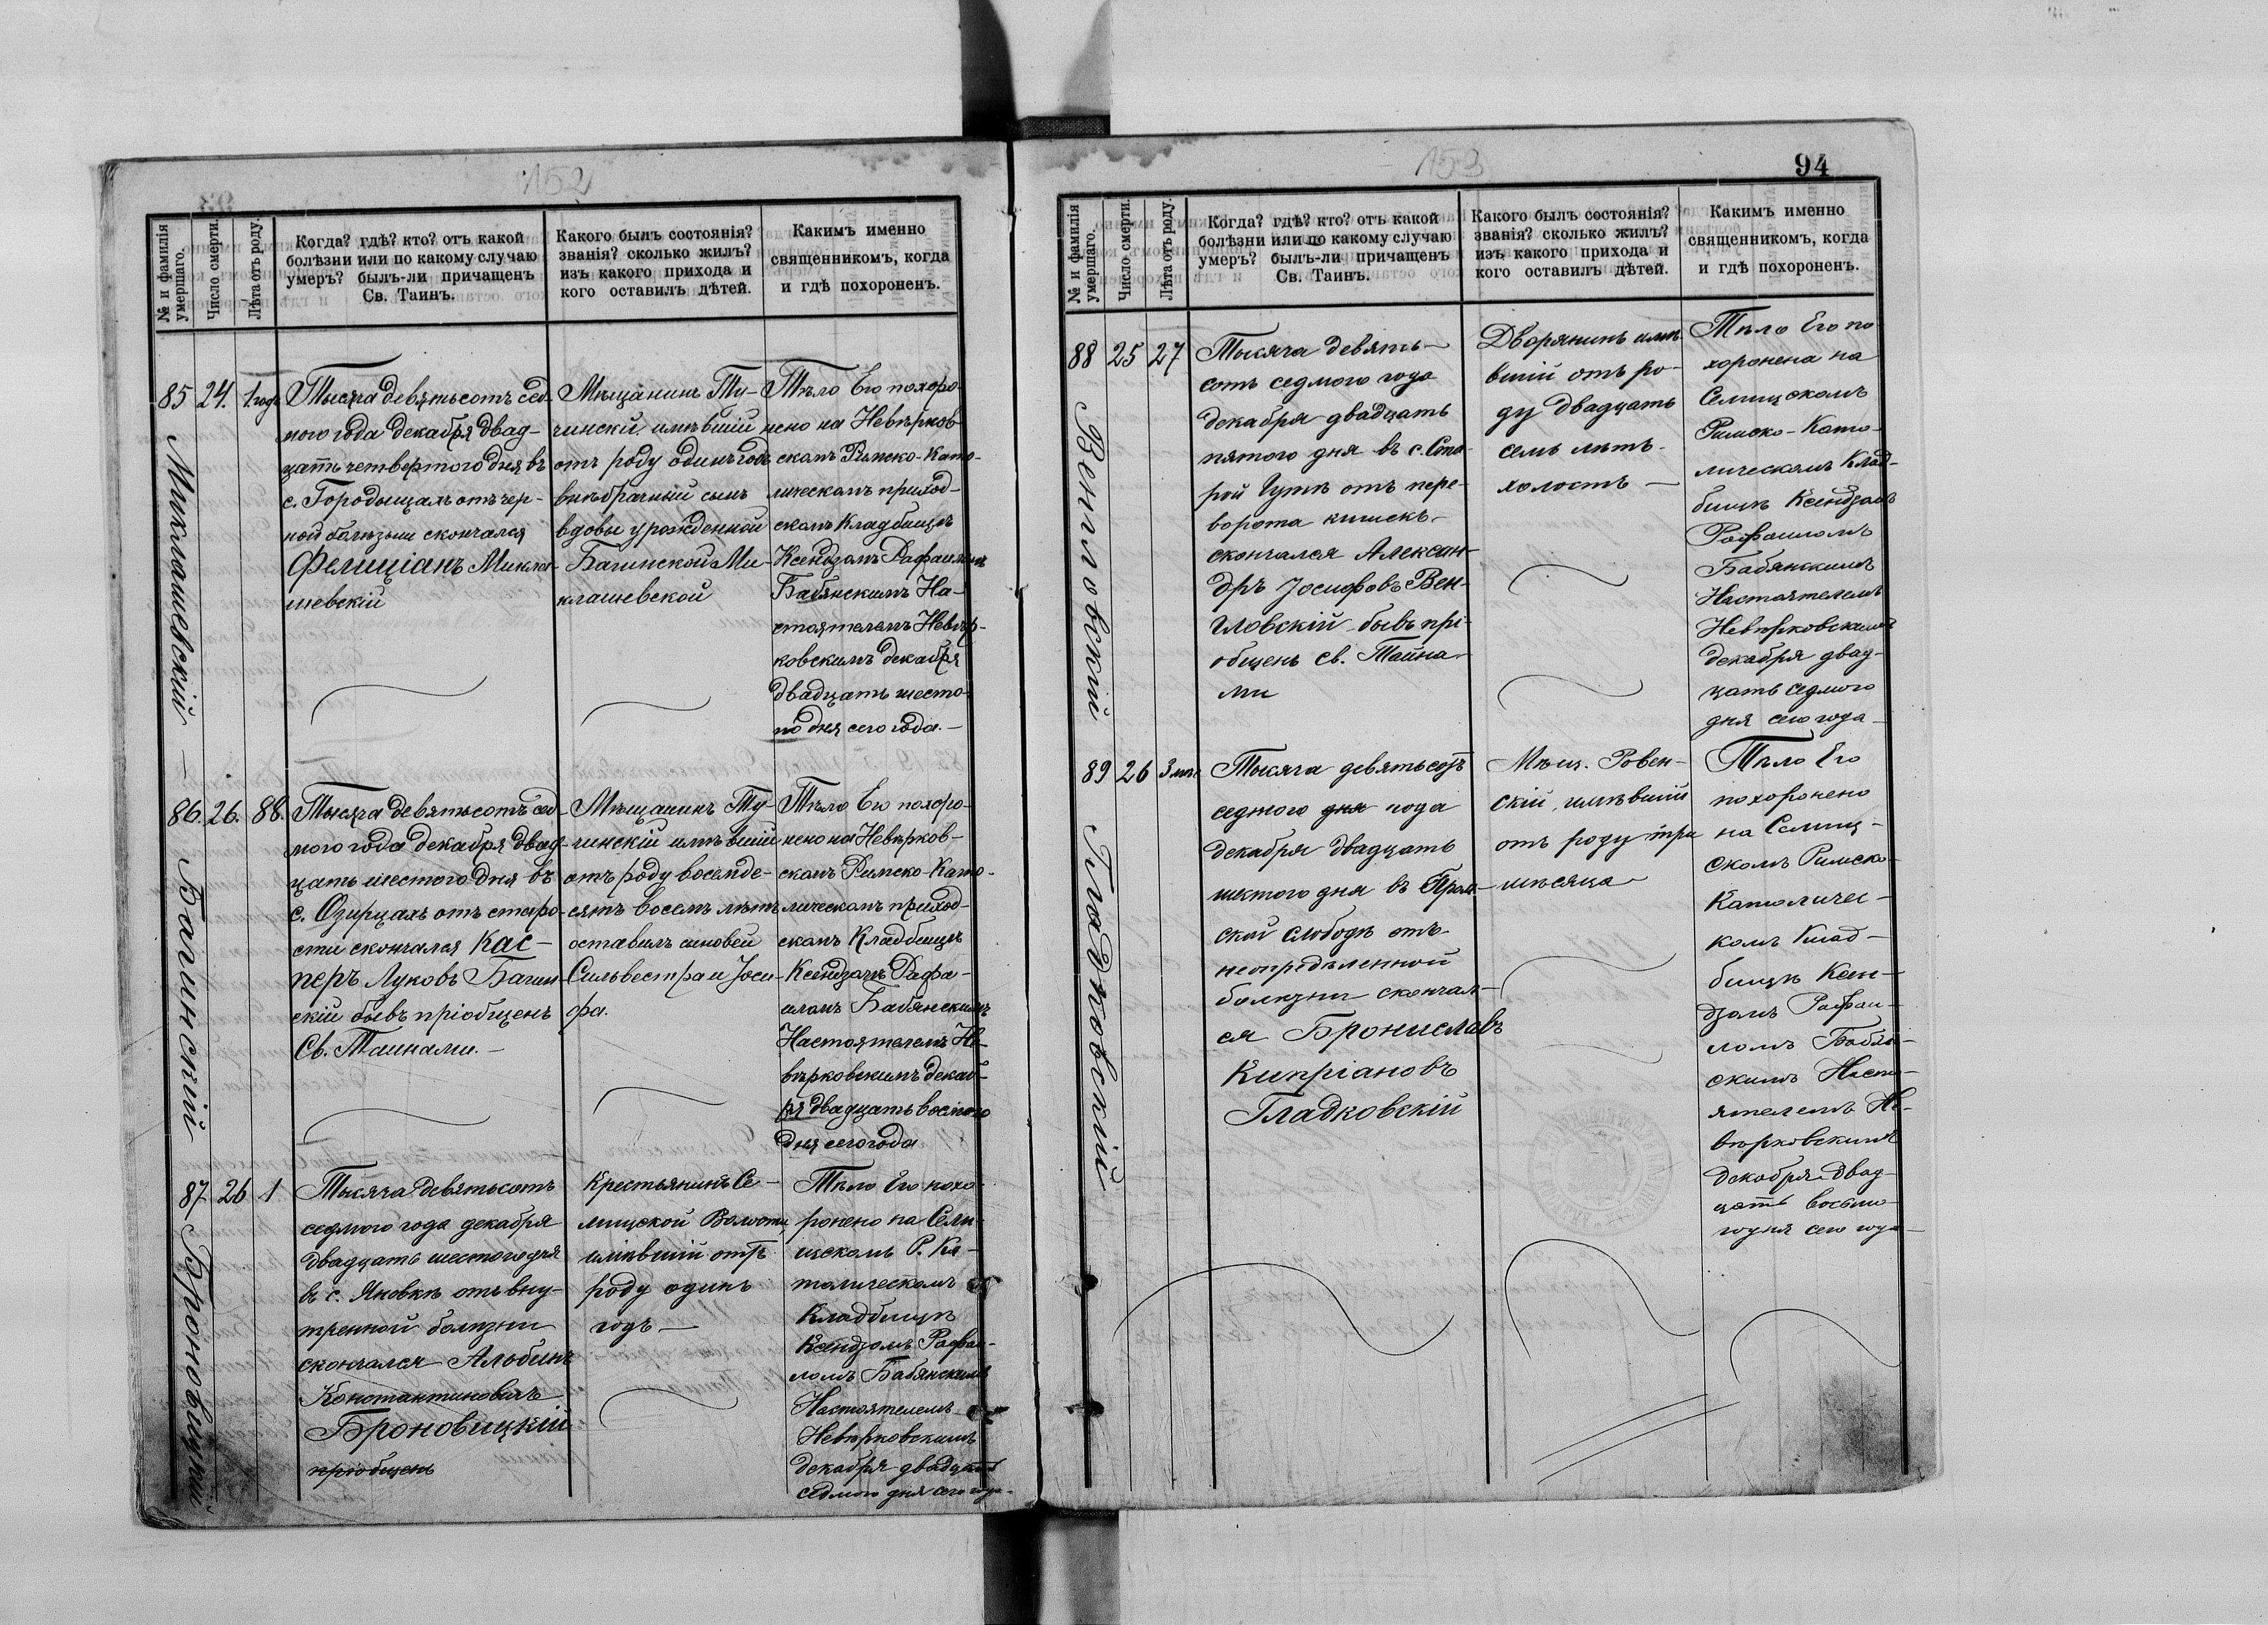 152
№ и фамилія
умершаго.
Число смерти.
Лѣта отъ роду.
Когда? гдѣ? кто? отъ какой
болѣзни или по какому случаю
умеръ? былъ-ли причащенъ
Св. Таинъ.
Какого былъ состоянія?
званія? сколько жилъ?
изъ какого прихода и
кого оставилъ дѣтей.
Какимъ именно
священникомъ, когда
и гдѣ похороненъ.
85
Миклашевскій
24.
1. годъ
Тысяча девятьсотъ сед-
мого года декабря двад-
цать четвертого дня въ
с. Городыщахъ отъ чер-
ной болѣзни скончался
Фелиціанъ Микла-
шевскій
Мѣщанинъ Ту-
чинскій имѣвшій
отъ роду одинъ годъ
внѣбрачный сынъ
вдовы урожденной
Багинской Ми-
клашевской
Тѣло Его похоро-
нено на Невѣрков-
скомъ Римско-Като-
лическомъ приход-
скомъ Кладбищѣ
Ксендзомъ Рафаиломъ
Бабянскимъ На-
стоятелемъ Невѣр-
ковскимъ декабря
двадцать шесто-
го дня сего года.
86.
Багинскій
26.
88.
Тысяча девятьсотъ сед-
мого года декабря двад-
цать шестого дня въ
с. Озирцахъ отъ старо-
сти скончался Кас-
перъ Луковъ Багин-
скій бывъ пріобщенъ
Св. Тайнами.
Мѣщанинъ Ту-
чинскій имѣвшій
отъ роду восемде-
сятъ восемъ лѣтъ
оставилъ сыновей
Сильвестра и Іоси-
фа.
Тѣло Его похоро-
нено на Невѣрков-
скомъ Римско-Като-
лическомъ приход-
скомъ Кладбищѣ
Ксендзомъ Рафа-
иломъ Бабянскимъ
Настоятелемъ Не-
вѣрковскимъ декаб-
ря двадцать восмого
дня сего года
87
Броновицкій
26
1
Тысяча девятьсотъ
седмого года декабря
двадцать шестого дня
въ с. Яновкѣ отъ вну-
тренной болѣзни
скончался Альбинъ
Константиновичъ
Броновицкій
пріобщенъ
Крестьянинъ Се-
лищской Волости,
имѣвшій отъ
роду одинъ
годъ
Тѣло Его похо-
ронено на Сели-
щскомъ Р. Ка-
толическомъ
Кладбищѣ
Ксендзомъ Рафаи-
ломъ Бабянскимъ
Настоятелемъ
Невѣрковскимъ
декабря двадцать
седмого дня сего года
153
94
№ и фамилія
умершаго.
Число смерти.
Лѣта отъ роду.
Когда? гдѣ? кто? отъ какой
болѣзни или по какому случаю
умеръ? былъ-ли причащенъ
Св. Таинъ.
Какого былъ состоянія?
званія? сколько жилъ?
изъ какого прихода и
кого оставилъ дѣтей.
Какимъ именно
священникомъ, когда
и гдѣ похороненъ.
88
Венгловскій
25
27
Тысяча девять-
сотъ седмого года
декабря двадцать
пятого дня въ с. Ста-
рой Гутѣ отъ пере-
ворота кишекъ
скончался Алексан-
дръ Іосифовъ Вен-
гловскій бывъ прі-
общенъ св. Тайна-
ми
Дворянинъ имѣ-
вшій отъ ро-
ду двадцать
семь лѣтъ
холостъ
Тѣло Его по
хоронена на
Селищскомъ
Римско-Като-
лическомъ Клад-
бищѣ Ксендзомъ
Рафаиломъ
Бабянскимъ
Настоятелемъ
Невѣрковскимъ
декабря двад-
цать седмого
дня сего года
89
Гладковскій
26
3 мѣс.
Тысяча девятьсотъ
седмого дня года
декабря двадцать
шестого дня въ
ской слободѣ отъ
неопредѣленной
болѣзни скончал-
ся Брониславъ
Кипріановъ
Гладковскій
Мѣщ. Ровен-
скій, имѣвшій
отъ роду три
мѣсяца
Тѣло Его
похоронено
на Селищ-
скомъ Римско-
Католичес-
комъ Клад-
бищѣ Ксен-
дзомъ Рафаи-
ломъ Бабян-
скимъ Насто-
ятелемъ Не-
вѣрковскимъ
декабря двад-
цать восьмо-
го дня сего года